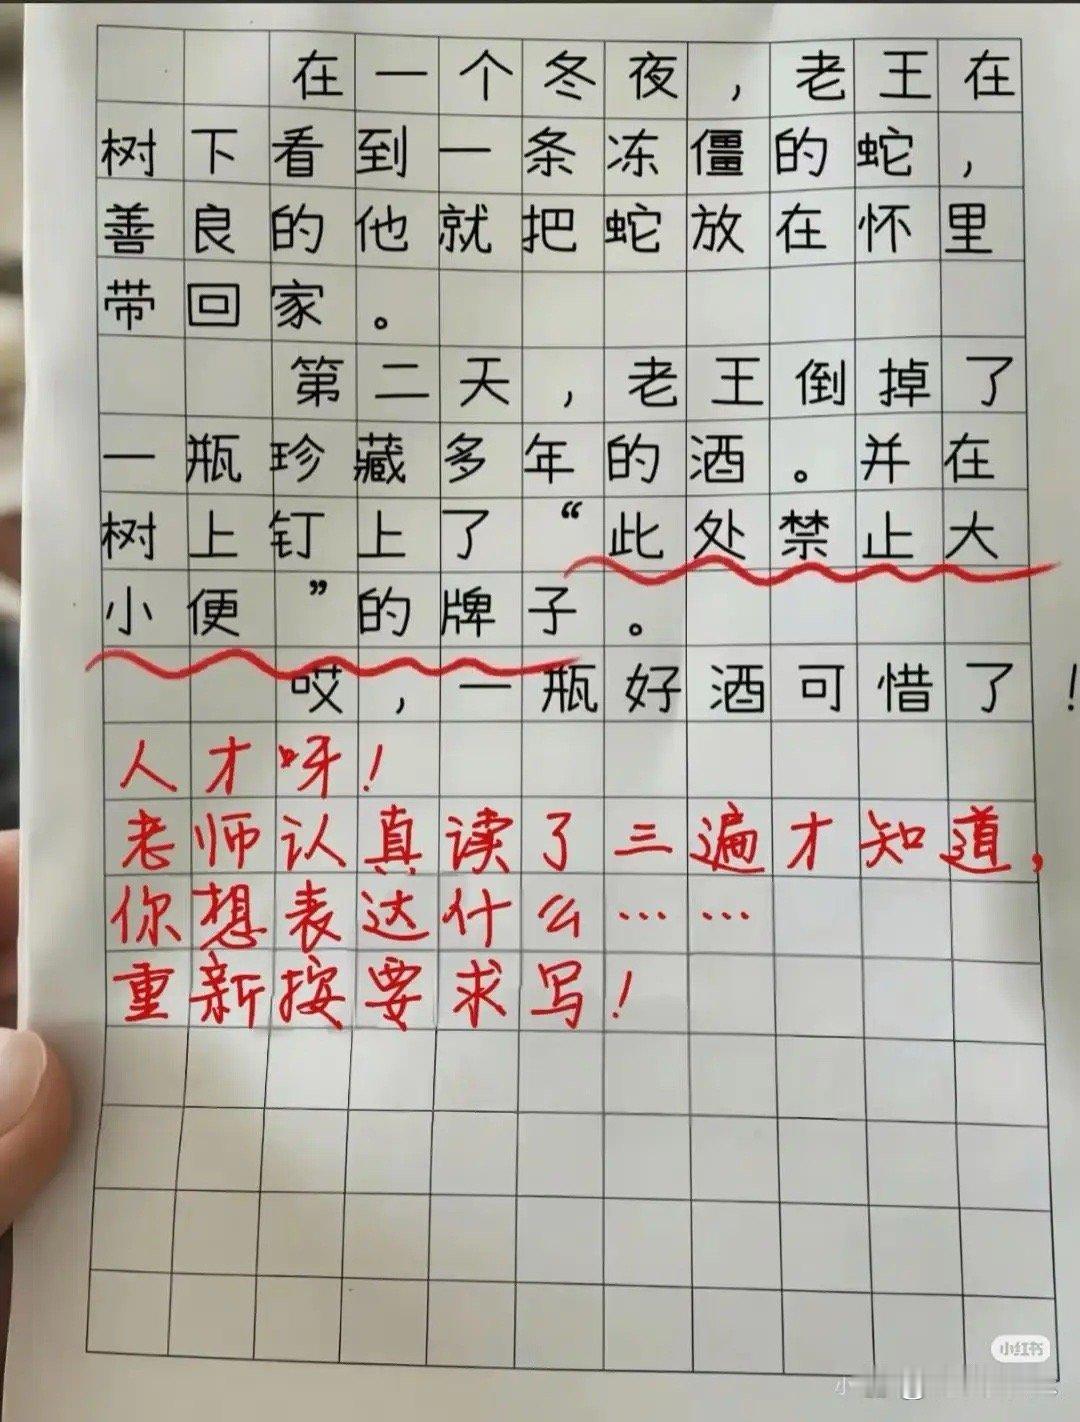 在一个冬夜，老王在
树下看到一条冻僵的蛇，
善良的他就把蛇放在怀里
带回家。
第二天，老王倒掉了
一瓶珍藏多年的酒。并在
树上钉上了“此处禁止大
小便”的牌子。
哎，一瓶好酒可惜了！
人才呀！
老师认真读了三遍才知道，
你想表达什么……
重新按要求写！
小红书